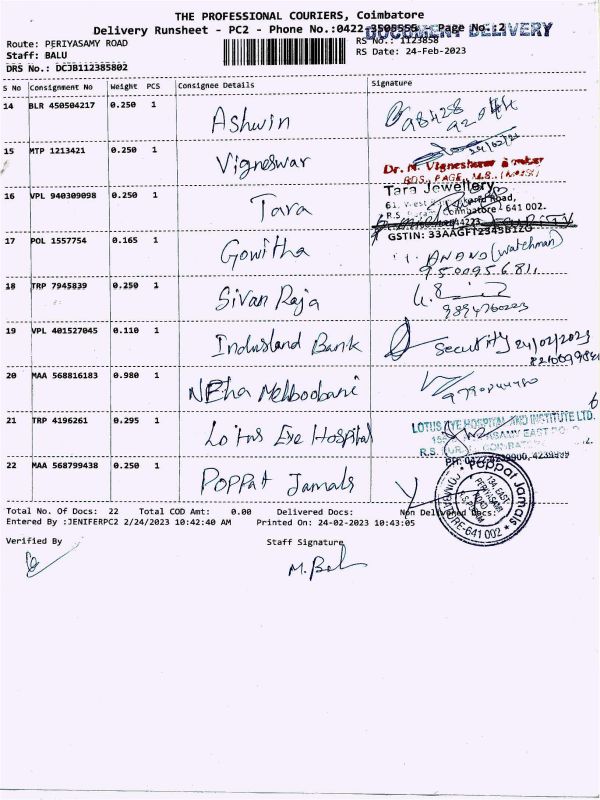 THE PROFESSIONAL COURIERS, Coimbatore
Delivery Runsheet - PC2 - Phone No.:0422-3505555 Page No.:2
DOCUMENT DELIVERY
Route: PERIYASAMY ROAD
RS No.: 1123858
Staff: BALU
RS Date: 24-Feb-2023
DRS No.: DCJB112385802
S No Consignment No Weight PCS Consignee Details Signature
14 BLR 450504217 0.250 1 Ashwin
15 MTP 1213421 0.250 1 Vigneswar 24/02/23
Dr. N. Vigneshwar
16 VPL 940309098 0.250 1 Tara
Tara Jewellery
Coimbatore - 641 002.
GSTIN: 33AAGFT2343B1ZG
17 POL 1557754 0.165 1 Gowitha ANAND (watchman)
9500956811
18 TRP 7945839 0.250 1 Sivan Raja
9894760223
19 VPL 401527045 0.110 1 Indusland Bank Security 24/02/2023
20 MAA 568816183 0.980 1 NEha Melboobani
21 TRP 4196261 0.295 1 Lotus Eye Hospital
LOTUS EYE HOSPITAL AND INSTITUTE LTD.
22 MAA 568799438 0.250 1 POPPAt Jamals
Poppat Jamals
134, EAST
PERIYASAMY
ROAD
R.S.PURAM
COIMBATORE-641 002
Total No. Of Docs: 22 Total COD Amt: 0.00 Delivered Docs: Non Delivered Docs:
Entered By :JENIFERPC2 2/24/2023 10:42:40 AM Printed On: 24-02-2023 10:43:05
Verified By Staff Signature
M.Bal